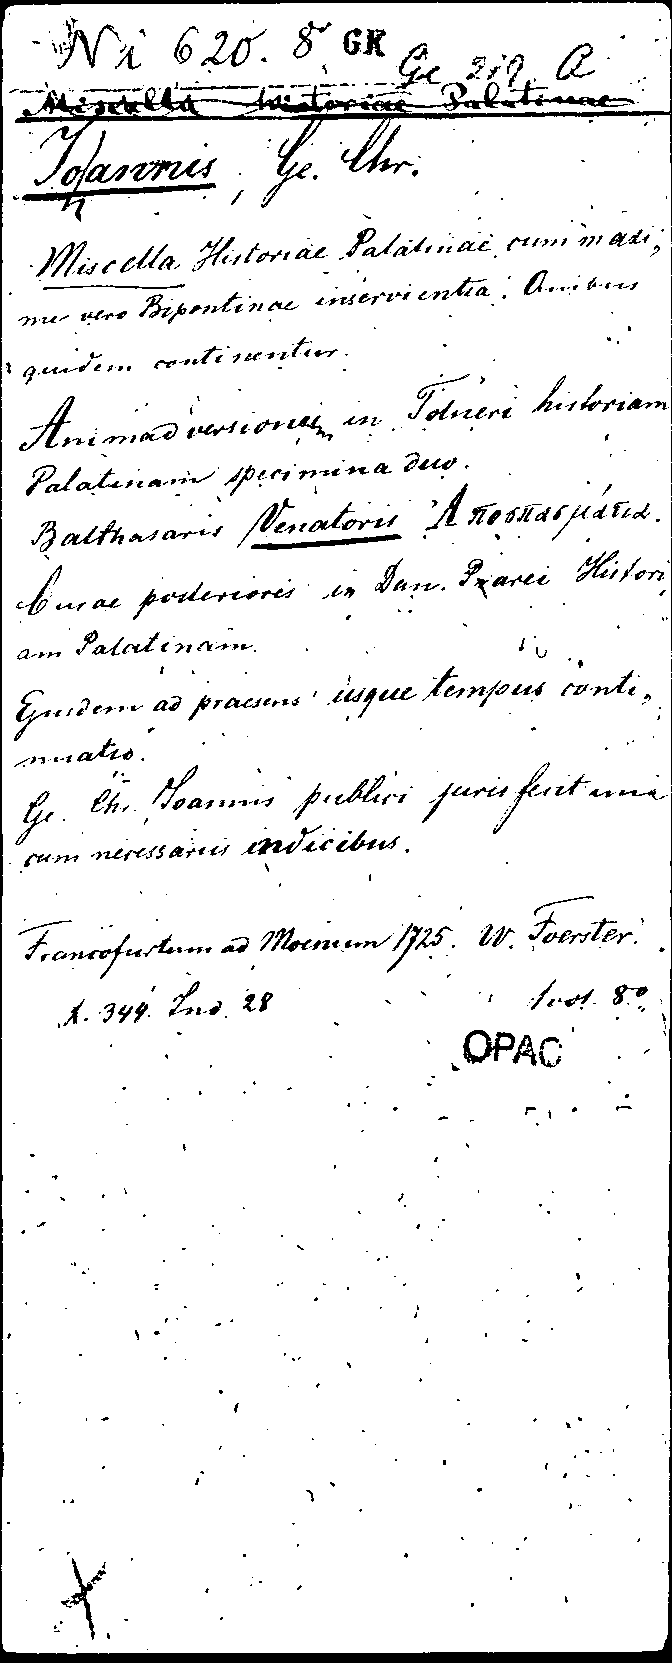 Ni 620. 8° GK
Ge 219. A
Miscella Historiae Palatinae
Joannis, Ge. Chr.
Miscella Historiae Palatinae cum maxi,
me vero Bipontinae inservientia. Quibus
quidem continentur.
Animadversiones in Tolneri historiam
Palatinam specimina duo.
Balthasaris Venatoris Αποσπασμάτια.
Curae posteriores in Dan. Parei Histori
am Palatinam.
Ejusdem ad praesens usque tempus conti,
nuatio.
Ge. Chr. Joannis publici juris fecit una
cum necessariis indicibus.
Francofurtum ad Moenum 1725. W. Foerster.
S. 344. Ind. 28
1 vol. 8°
OPAC